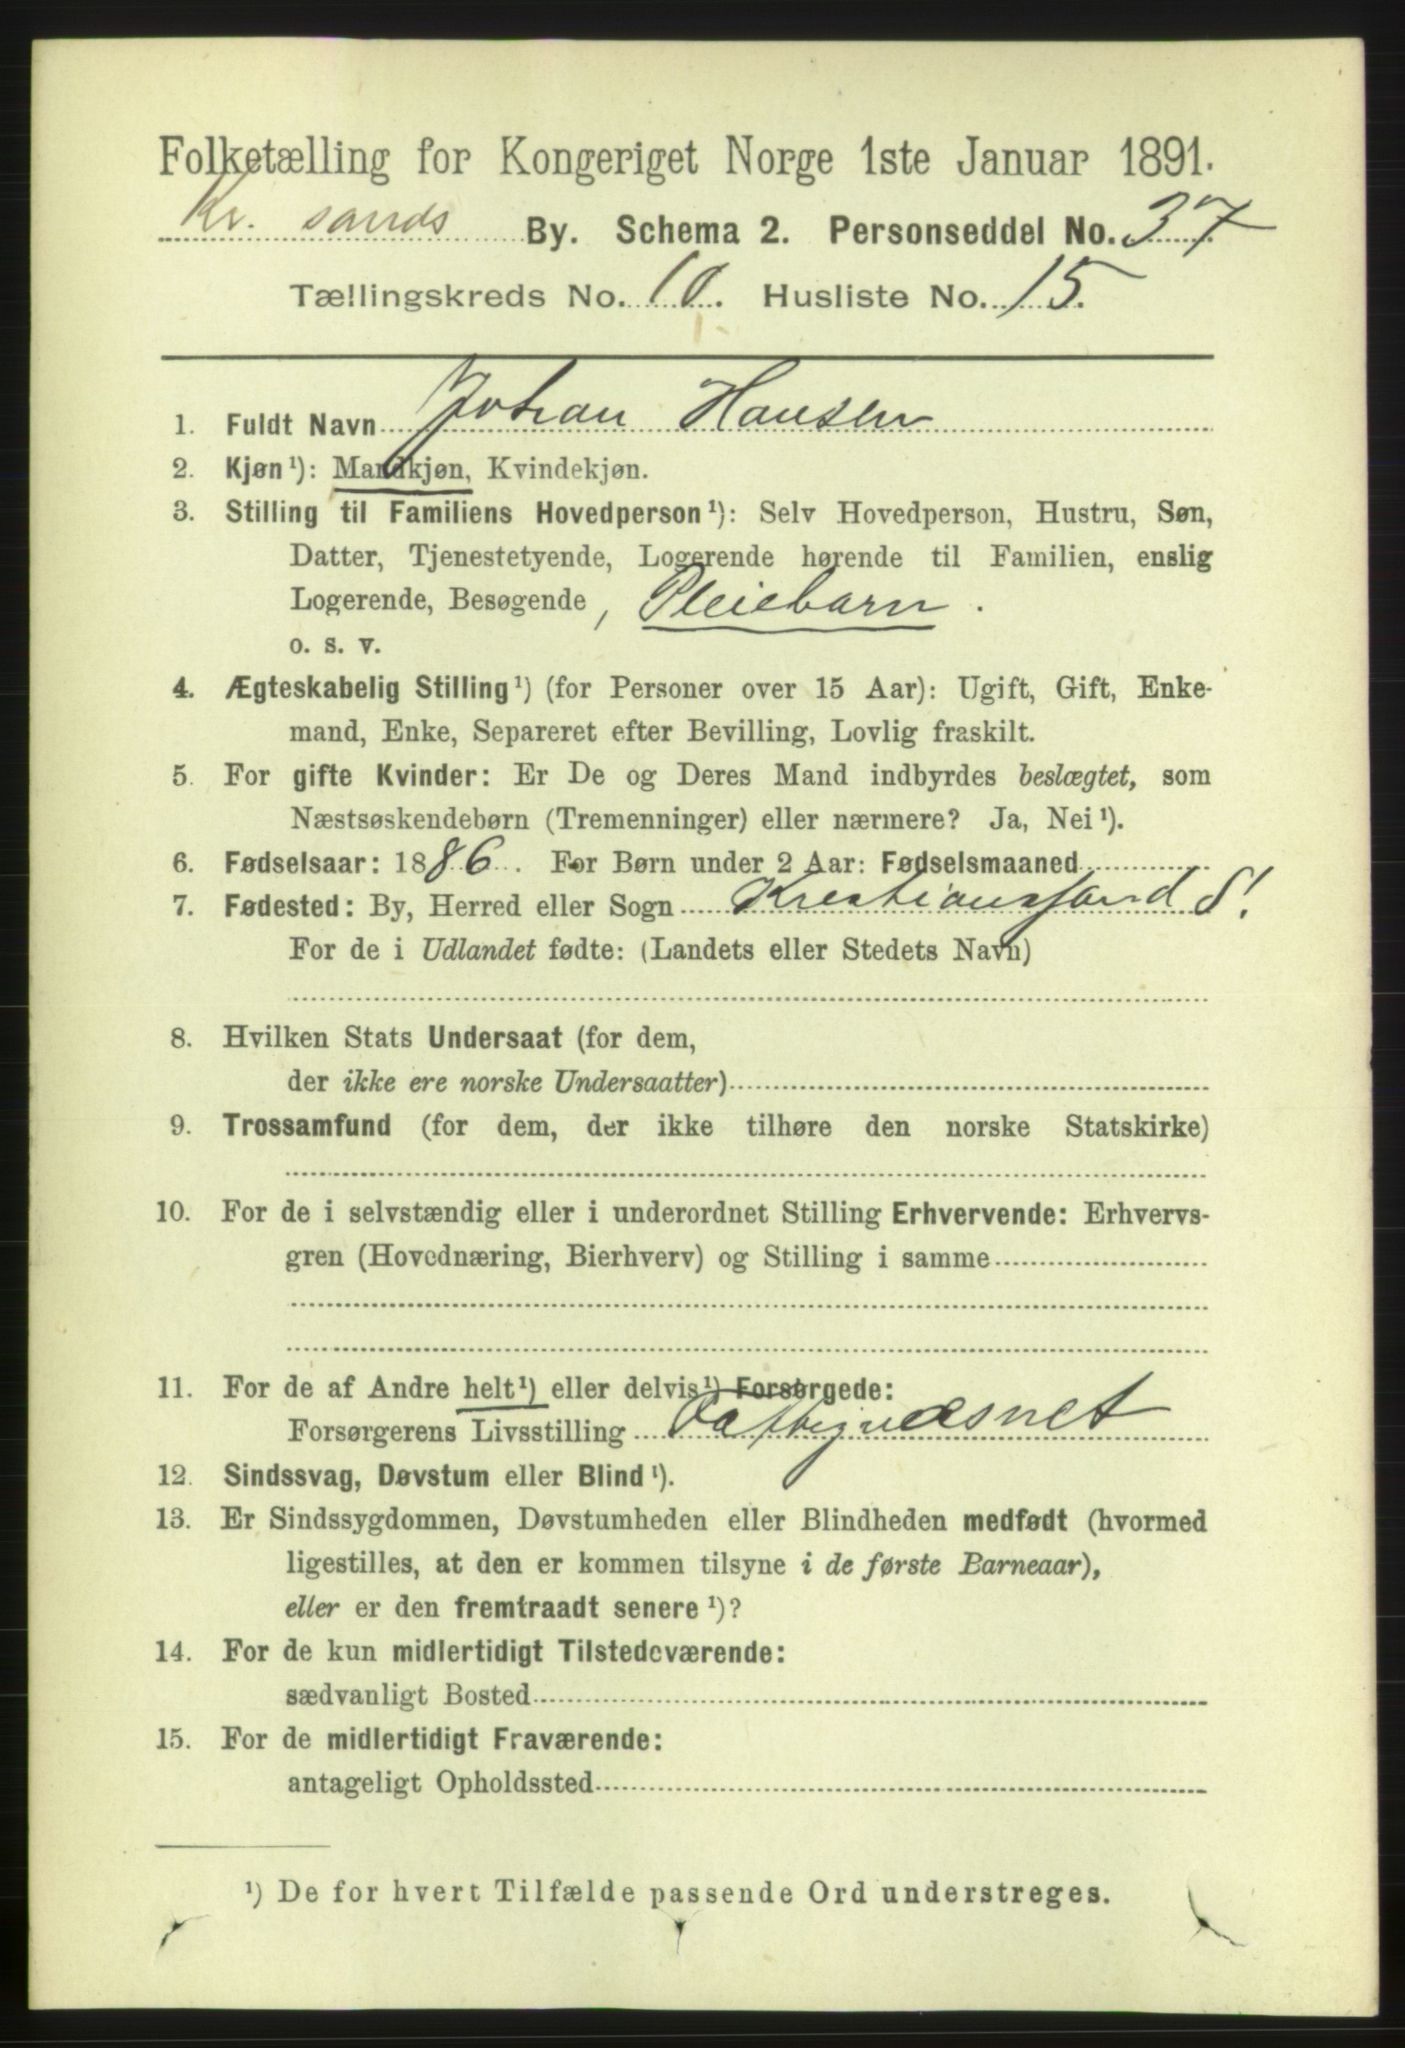 Folketælling for Kongeriget Norge 1ste Januar 1891.
Kr. sands By. Schema 2. Personseddel No. 37
Tællingskreds No. 10. Husliste No. 15.
1. Fuldt Navn Johan Hansen
2. Kjøn¹): Mandkjøn, Kvindekjøn.
3. Stilling til Familiens Hovedperson¹): Selv Hovedperson, Hustru, Søn,
Datter, Tjenestetyende, Logerende hørende til Familien, enslig
Logerende, Besøgende, Pleiebarn.
o. s. v.
4. Ægteskabelig Stilling¹) (for Personer over 15 Aar): Ugift, Gift, Enke-
mand, Enke, Separeret efter Bevilling, Lovlig fraskilt.
5. For gifte Kvinder: Er De og Deres Mand indbyrdes beslægtet, som
Næstsøskendebørn (Tremenninger) eller nærmere? Ja, Nei¹).
6. Fødselsaar: 1886. For Børn under 2 Aar: Fødselsmaaned
7. Fødested: By, Herred eller Sogn Krestianssand S!
For de i Udlandet fødte: (Landets eller Stedets Navn)
8. Hvilken Stats Undersaat (for dem,
der ikke ere norske Undersaatter)
9. Trossamfund (for dem, der ikke tilhøre den norske Statskirke)
10. For de i selvstændig eller i underordnet Stilling Erhvervende: Erhvervs-
gren (Hovednæring, Bierhverv) og Stilling i samme
11. For de af Andre helt¹) eller delvis¹) Forsørgede:
Forsørgerens Livsstilling Fattigvæsnet
12. Sindssvag, Døvstum eller Blind¹).
13. Er Sindssygdommen, Døvstumheden eller Blindheden medfødt (hvormed
ligestilles, at den er kommen tilsyne i de første Barneaar),
eller er den fremtraadt senere¹)?
14. For de kun midlertidigt Tilstedeværende:
sædvanligt Bosted
15. For de midlertidigt Fraværende:
antageligt Opholdssted
¹) De for hvert Tilfælde passende Ord understreges.